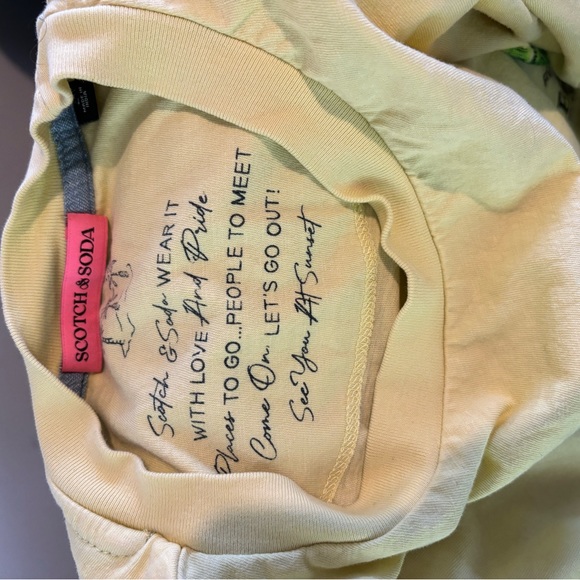 SCOTCH & SODA
Scotch & Soda WEAR IT
WITH LOVE And Pride
Places TO GO...PEOPLE TO MEET
Come On, LET'S GO OUT!
See You At Sunset